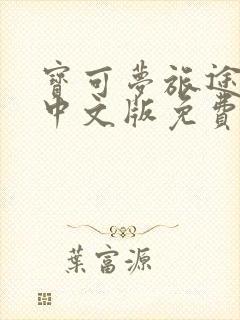 寶可夢旅途
中文版免費
葉富源